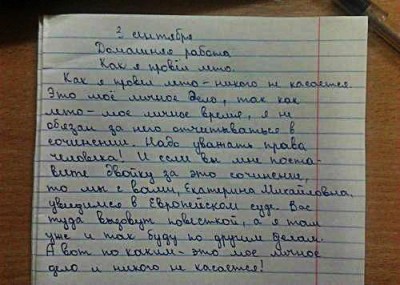 3 сентября
Домашняя работа
Как я провёл лето.
Как я провёл лето - никого не касается.
Это моё личное дело, так как
лето - моё личное время, я не
обязан за него отчитываться в
сочинении. Надо уважать права
человека! И если вы мне поста-
вите двойку за это сочинение,
то мы с вами, Екатерина Михайловна,
увидимся в Европейском суде. Вас
туда вызовут повесткой, а я там
уже и так буду по другим делам.
А вот по каким - это моё личное
дело и никого не касается!